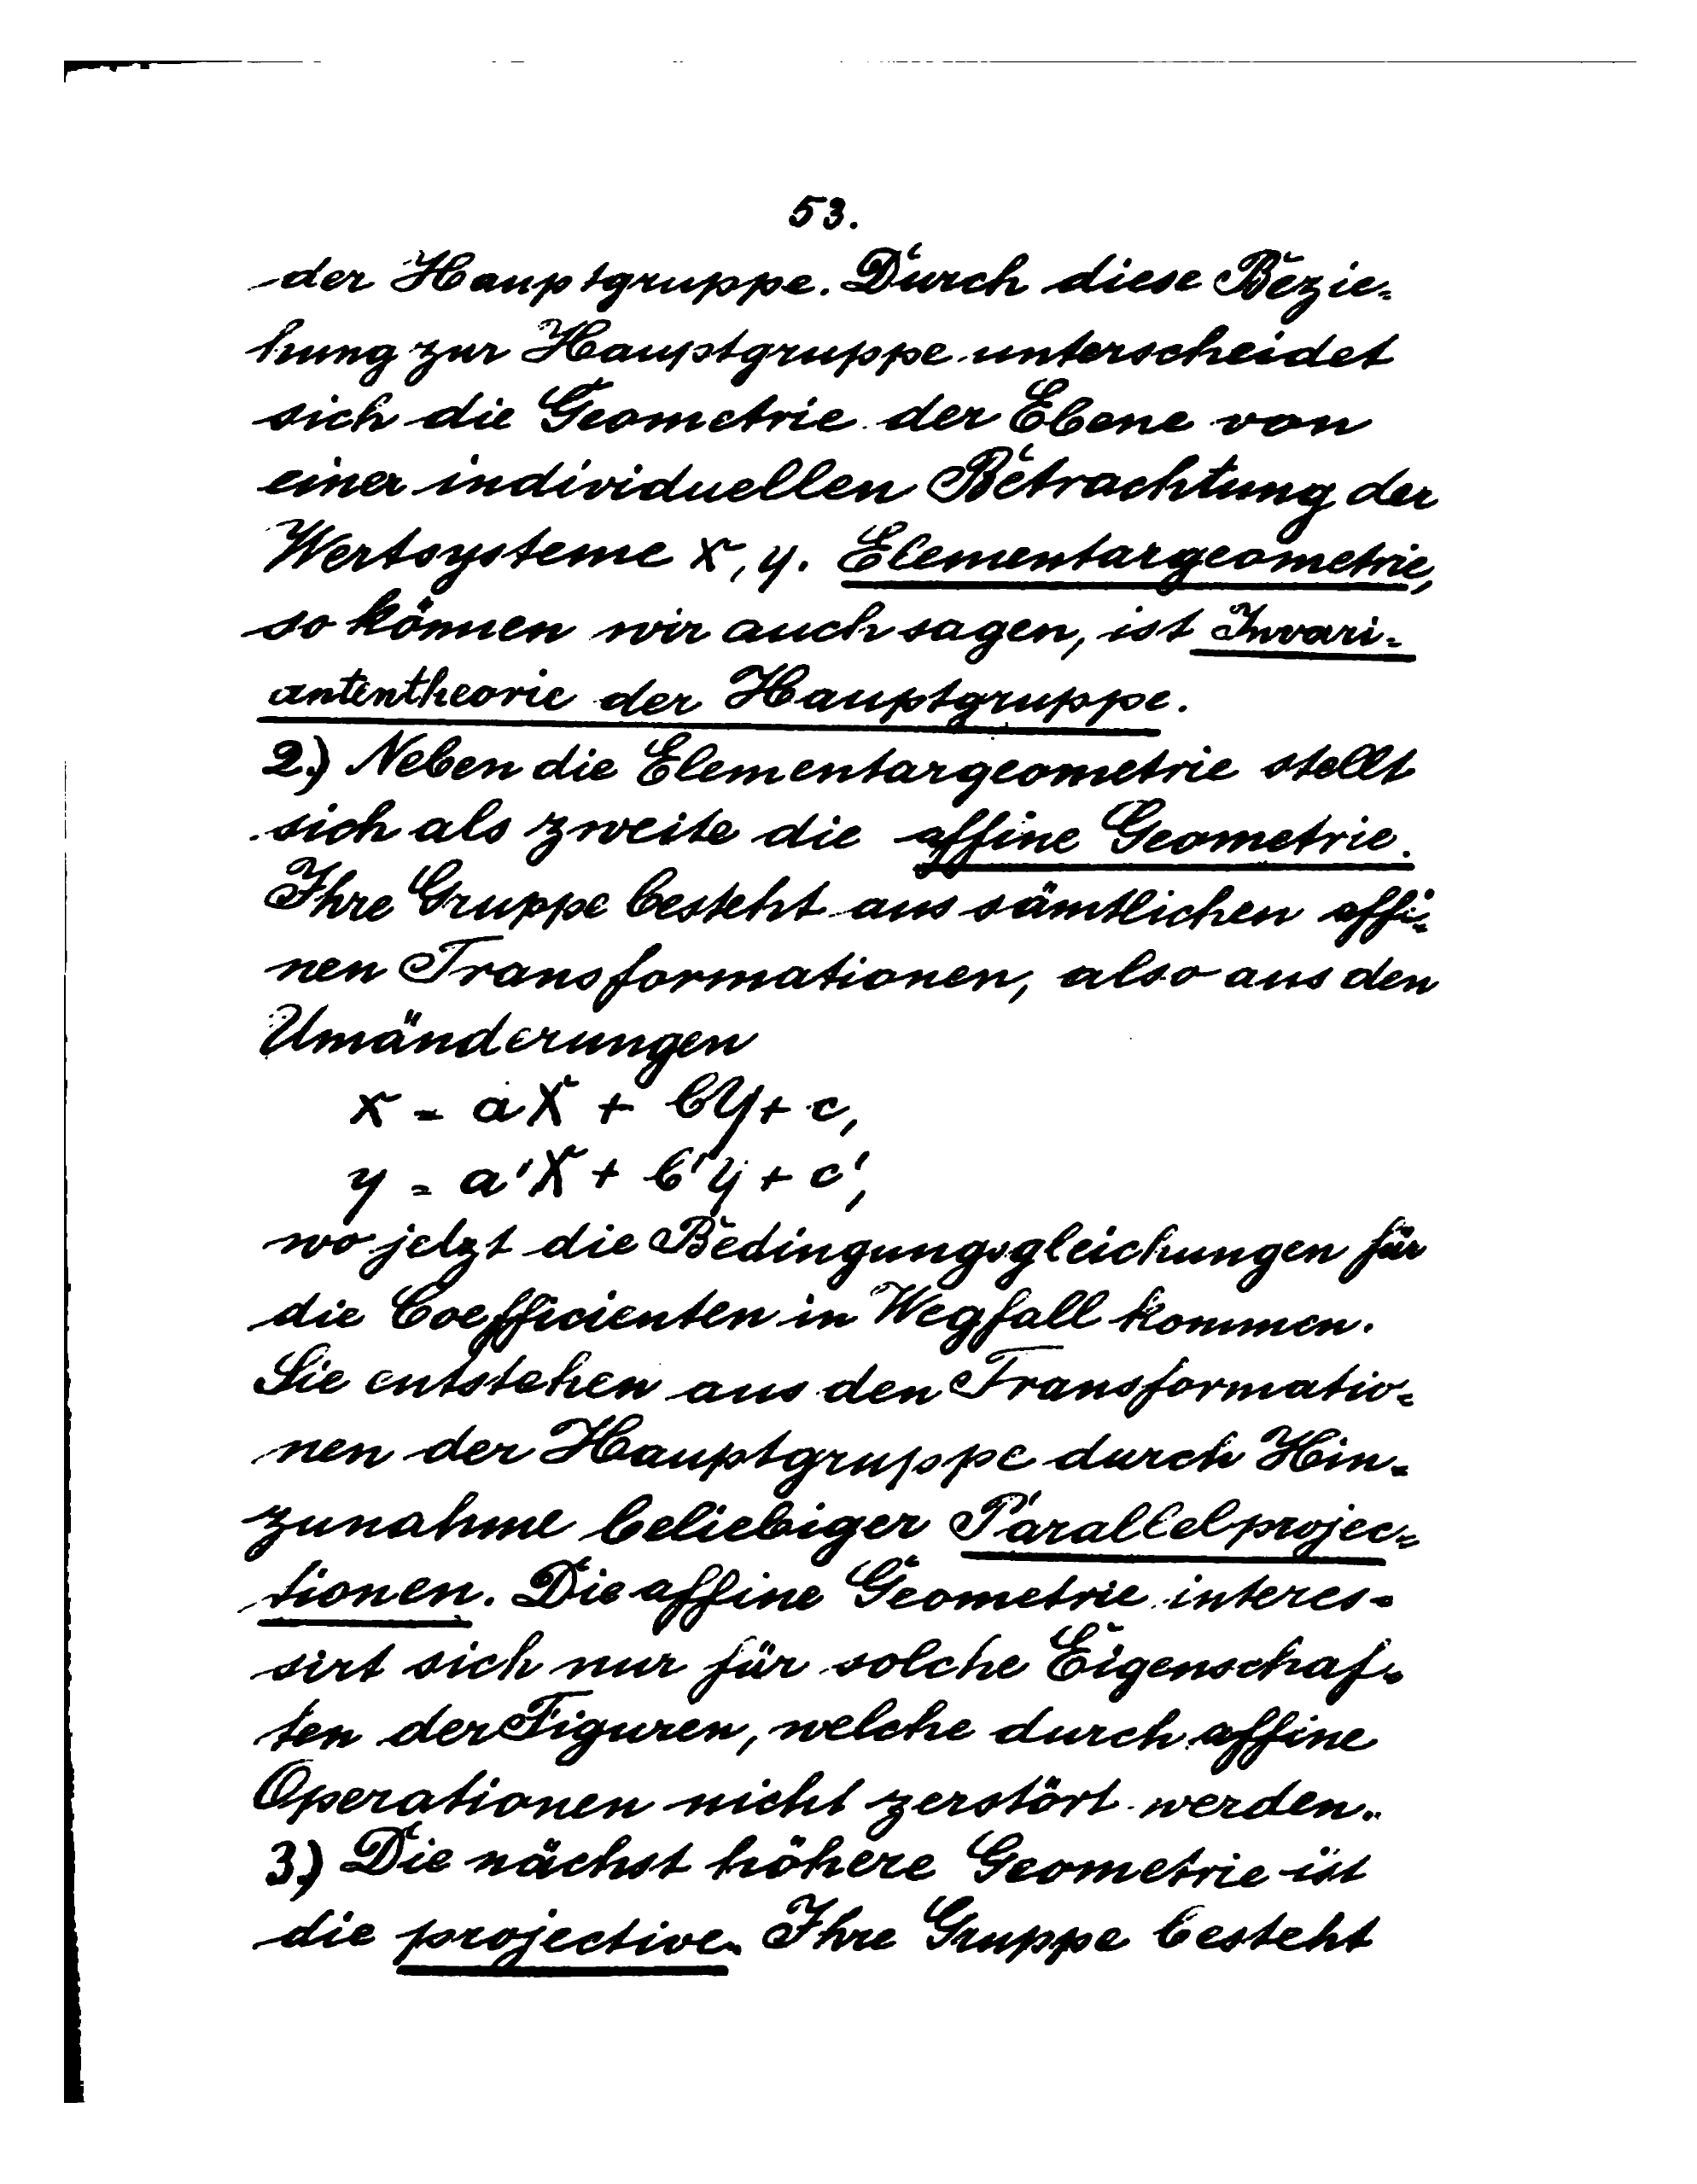 53.
der Hauptgruppe. Durch diese Bezie-
hung zur Hauptgruppe unterscheidet
sich die Geometrie der Ebene von
einer individuellen Betrachtung der
Wertsysteme x, y. Elementargeometrie,
so können wir auch sagen, ist Invari-
antentheorie der Hauptgruppe.
2.) Neben die Elementargeometrie stellt
sich als zweite die affine Geometrie.
Ihre Gruppe besteht aus sämtlichen affi-
nen Transformationen, also aus den
Umänderungen
x = aX + bY + c,
y = a'X + b'Y + c',
wo jetzt die Bedingungsgleichungen für
die Coefficienten in Wegfall kommen.
Sie entstehen aus den Transformatio-
nen der Hauptgruppe durch Hin-
zunahme beliebiger Parallelprojec-
tionen. Die affine Geometrie interes-
sirt sich nur für solche Eigenschaf-
ten der Figuren, welche durch affine
Operationen nicht zerstört werden.
3.) Die nächst höhere Geometrie ist
die projective. Ihre Gruppe besteht